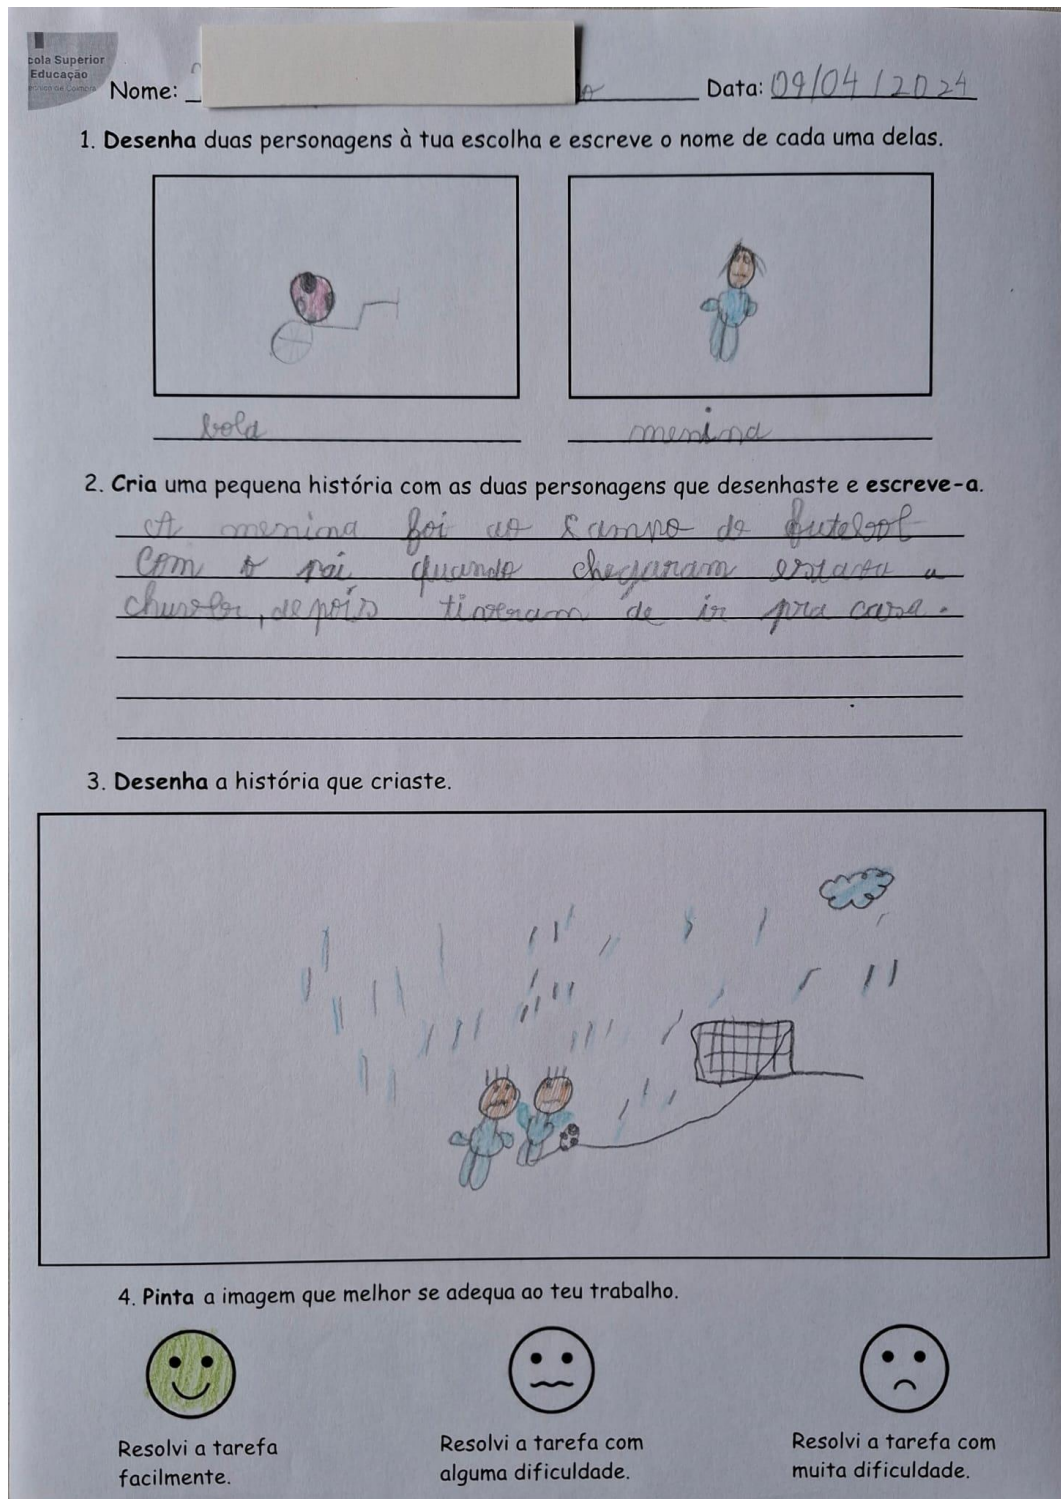 cola Superior
Educação
Nome: Data: 09/04/2024
1. Desenha duas personagens à tua escolha e escreve o nome de cada uma delas.
bola menina
2. Cria uma pequena história com as duas personagens que desenhaste e escreve-a.
A menina foi ao campo de futebol
com o pai quando chegaram estava a
chuver, depois tiveram de ir pra casa.
3. Desenha a história que criaste.
4. Pinta a imagem que melhor se adequa ao teu trabalho.
Resolvi a tarefa facilmente.
Resolvi a tarefa com alguma dificuldade.
Resolvi a tarefa com muita dificuldade.